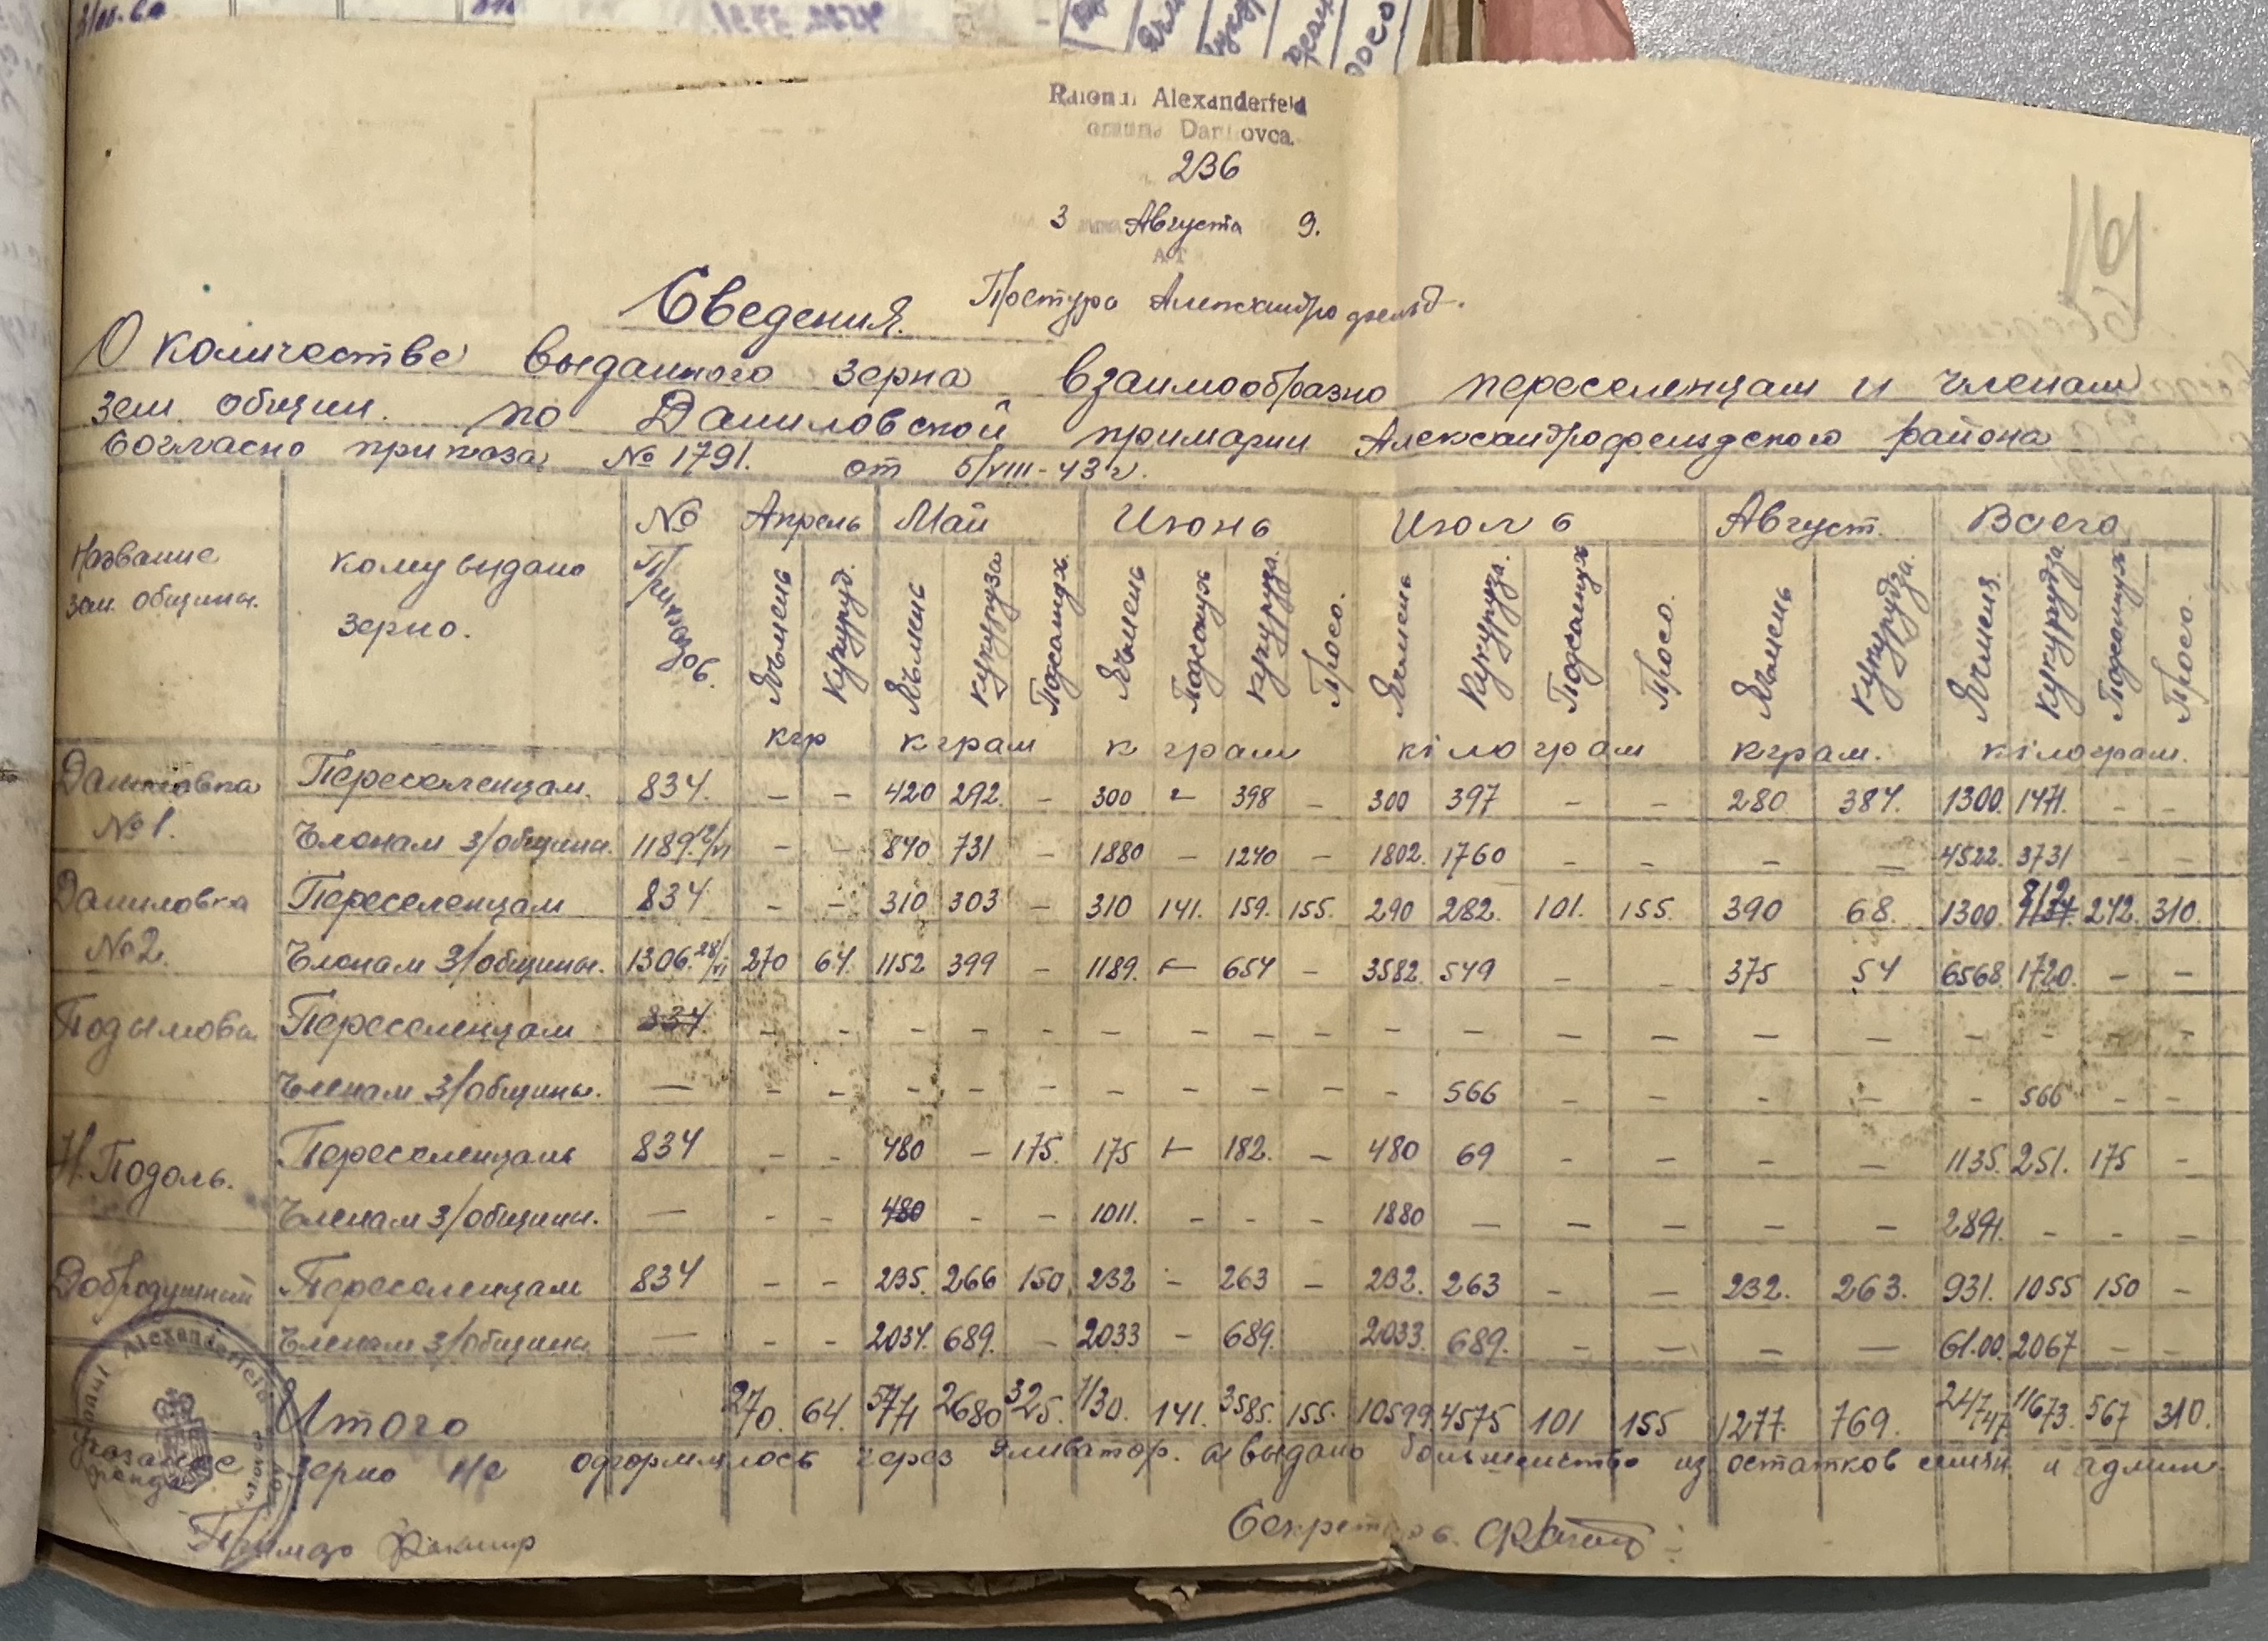 Raionul Alexanderfeld
omuna Dan ovca.
236
3 Августа 9.
Претура Александрофельд.
Сведения.
О количестве выданного зерна взаимообразно переселенцам и членам
зем общин. по Даниловской примарии Александрофельдского района
Согласно приказа № 1791. от 5/VIII-43 г.
Название зем. общины. | кому выдано зерно. | № | Апрель | Май | Июнь | Июль | Август. | Всего
Ячмень | Кукуруд. | Ячмень | кукуруза | Подсолнух. | Ячмень | Подсолнух | кукуруза. | Просо. | Ячмень | Кукуруза. | Подсолнух | Просо. | Ячмень | кукурудза. | Ячменя. | кукурудза | Подсолнух | Просо.
кгр | кграм | кграм | кілограм | кграм. | кілограм.
Даниловка №1. | Переселенцам. | 834. | – | – | 420 | 292. | – | 300 | – | 398 | – | 300 | 397 | – | – | 280 | 384. | 1300. | 1471. | – | –
Членам з/общины. | 1189. 12/VI | – | – | 840 | 731 | – | 1880 | – | 1240 | – | 1802. | 1760 | – | – | – | – | 4522. | 3731 | – | –
Даниловка №2. | Переселенцам | 834 | – | – | 310 | 303 | – | 310 | 141. | 159. | 155. | 290 | 282. | 101. | 155. | 390 | 68. | 1300. | 812 | 242. | 310.
Членам з/общины. | 1306. 28/VI | 270 | 64. | 1152 | 399 | – | 1189. | – | 654 | – | 3582. | 549 | – | 375 | 54 | 6568. | 1720. | – | –
Переселенцам | 834. | – | – | – | – | – | – | – | – | – | – | – | – | – | – | – | – | – | – | –
Членам з/общины. | — | – | – | – | – | – | – | – | – | – | – | 566 | – | – | – | – | – | 566 | – | –
Н. Подоль. | Переселенцам | 834 | – | – | 480 | – | 175. | 175 | – | 182. | – | 480 | 69 | – | – | – | – | 1135. | 251. | 175 | –
Членам з/общины. | — | – | – | 480 | – | – | 1011. | – | – | – | 1880 | – | – | – | – | – | 2891. | – | – | –
Переселенцам | 834 | – | – | 235. | 266 | 150. | 232 | – | 263 | – | 232. | 263 | – | – | 232. | 263. | 931. | 1055 | 150 | –
Членам з/общины. | — | – | – | 2034. | 689. | – | 2033 | – | 689. | 2033. | 689. | – | – | – | — | 61.00. | 2067 | – | –
Итого | 270. | 64. | 5771 | 2680 | 325. | 7130. | 141. | 3585. | 155. | 10599. | 4575 | 101 | 155 | 1277. | 769. | 24747 | 11673. | 567 | 310.
зерно не оформилось через эливатор. а выдано большенство из остатков
Примар
Секретарь.